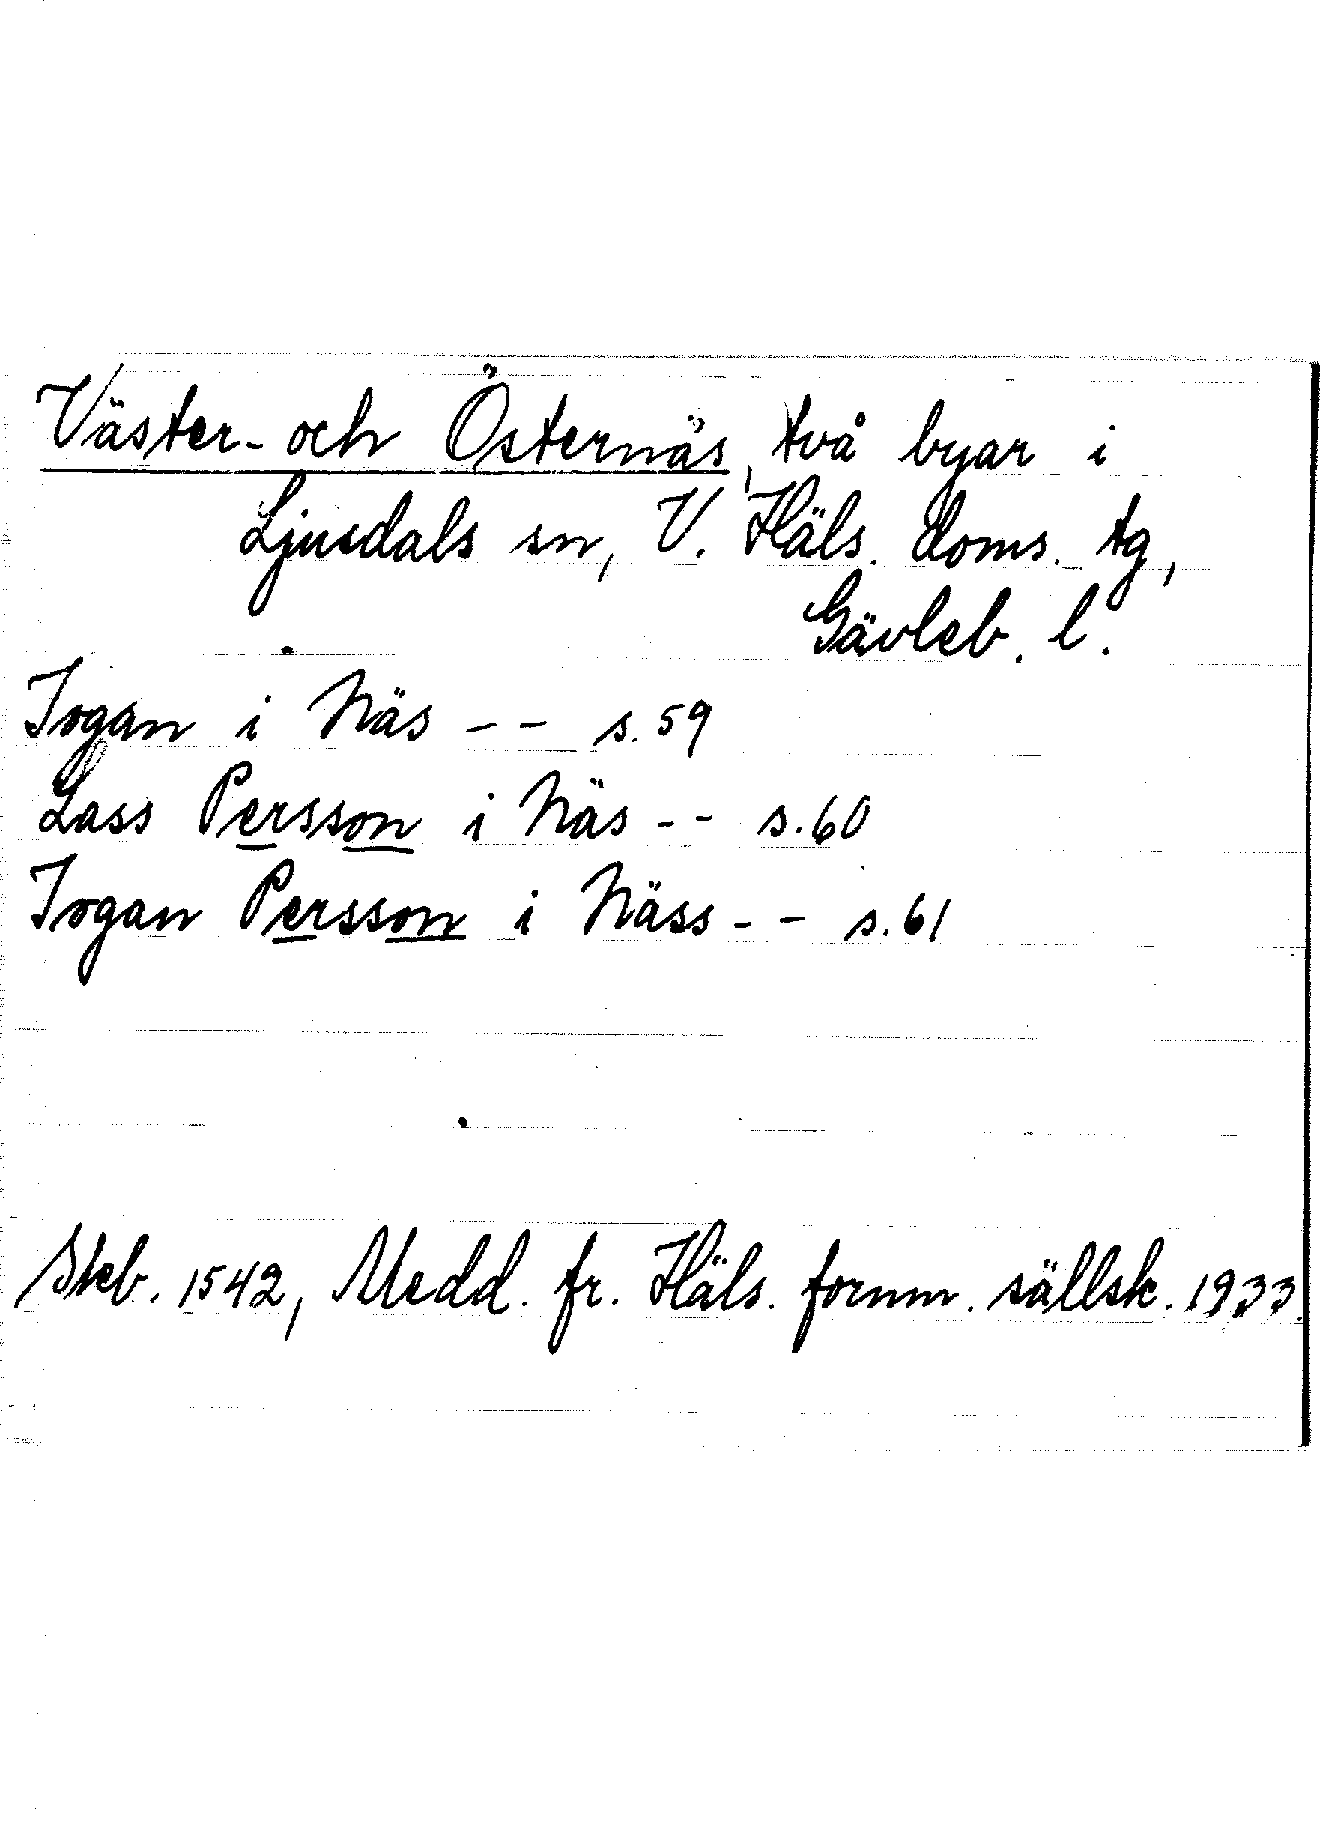 Väster- och Östernäs, två byar i
Ljusdals sn, V. Häls. doms. tg,
Gävleb. l.
Jogan i Näs -- s. 59
Lass Persson i Näs -- s. 60
Jogan Persson i Näss -- s. 61
Skb. 1542, Medd. fr. Häls. fornm. sällsk. 1933.